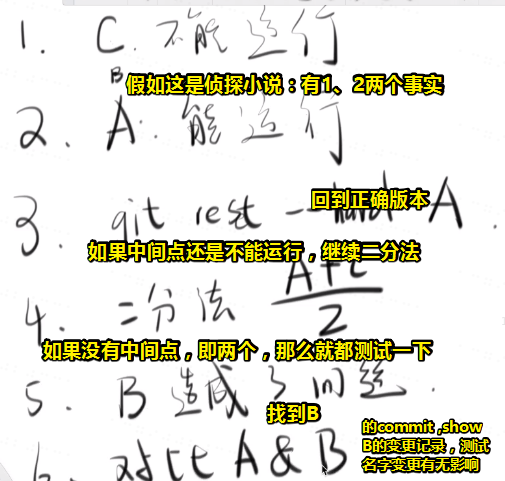 1. C. 不能运行
B
假如这是侦探小说：有1、2两个事实
2. A. 能运行
回到正确版本
3. git rest --hard A.
如果中间点还是不能运行，继续二分法
4. 二分法 A+C
2
如果没有中间点，即两个，那么就都测试一下
5. B 造成了问题.
找到B
的commit ,show
B的变更记录，测试
名字变更有无影响
对比 A & B